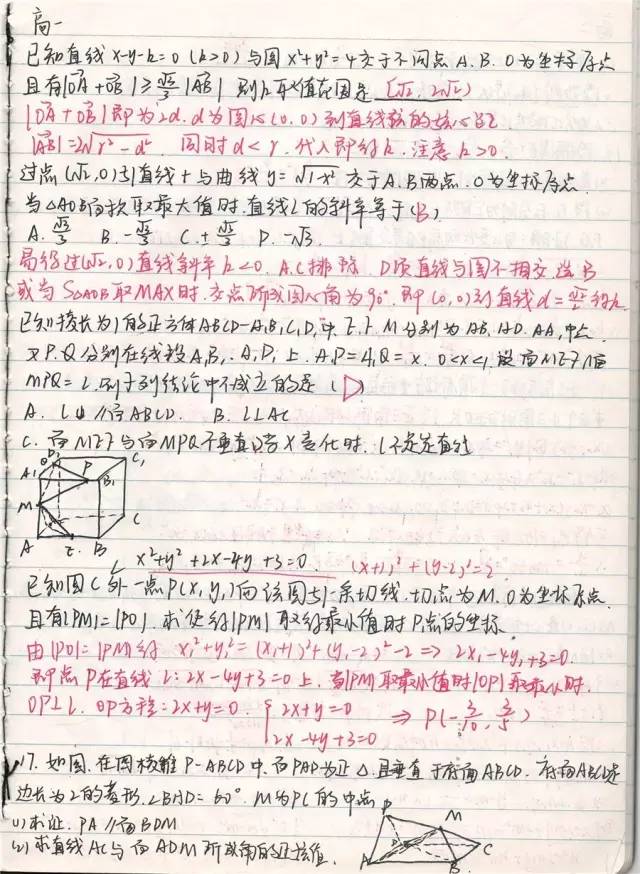 高一
已知直线 x-y-k=0 (k>0) 与圆 x²+y²=4 交于不同点 A.B. O为坐标原点
且有|OA+OB|≥√3/3|AB| 则k取值范围是 [√2, 2√2)
|OA+OB|即为2d. d为圆心(0,0)到直线的距离
|AB|=2√r²-d² 同时d<r. 代入即得k. 注意k>0.
过点(√2,0)引直线l与曲线y=√1-x² 交于A.B两点. O为坐标原点.
当△AOB面积取最大值时.直线L的斜率等于(B)
A. √3/3 B. -√3/3 C. ±√3/3 D. -√3.
易知过(√2,0)直线斜率k<0. A.C排除. D项直线与圆不相交.选B
或当S△AOB取MAX时.交点所成圆心角为90°.即(0,0)到直线d=√2/2得k.
已知棱长为1的正方体ABCD-A₁B₁C₁D₁中.E.F.M分别为AB.AD.AA₁中点.
又P.Q分别在线段A₁B₁.A₁D₁上.A₁P=A₁Q=x. 0<x<1.设面MEF∩面
MPQ=L.则下列结论中不成立的是(D)
A. L//面ABCD. B. L⊥AC
C. 面MEF与面MPQ不垂直 D.当X变化时.L不是定直线
D₁ C₁
Q P
A₁ B₁
M
C
A E B
x²+y²+2x-4y+3=0 (x+1)²+(y-2)²=2
已知圆C外一点P(x₁y₁)向该圆引一条切线.切点为M.O为坐标原点.
且有|PM|=|PO|.求使得|PM|取得最小值时P点的坐标.
由|PO|=|PM|得 x₁²+y₁²=(x₁+1)²+(y₁-2)²-2 => 2x₁-4y₁+3=0.
即点P在直线L:2x-4y+3=0上.当|PM|取最小值时|OP|取最小时.
OP⊥L. OP方程:2x+y=0. { 2x+y=0 => P(-3/10, 3/5)
2x-4y+3=0
17. 如图.在四棱锥P-ABCD中.面PAD为正△.且垂直于底面ABCD.底面ABCD是
边长为2的菱形.∠BAD=60°. M为PC的中点
(1)求证. PA//面BDM
(2)求直线AC与面ADM所成角的正弦值.
P
M
D C
A B